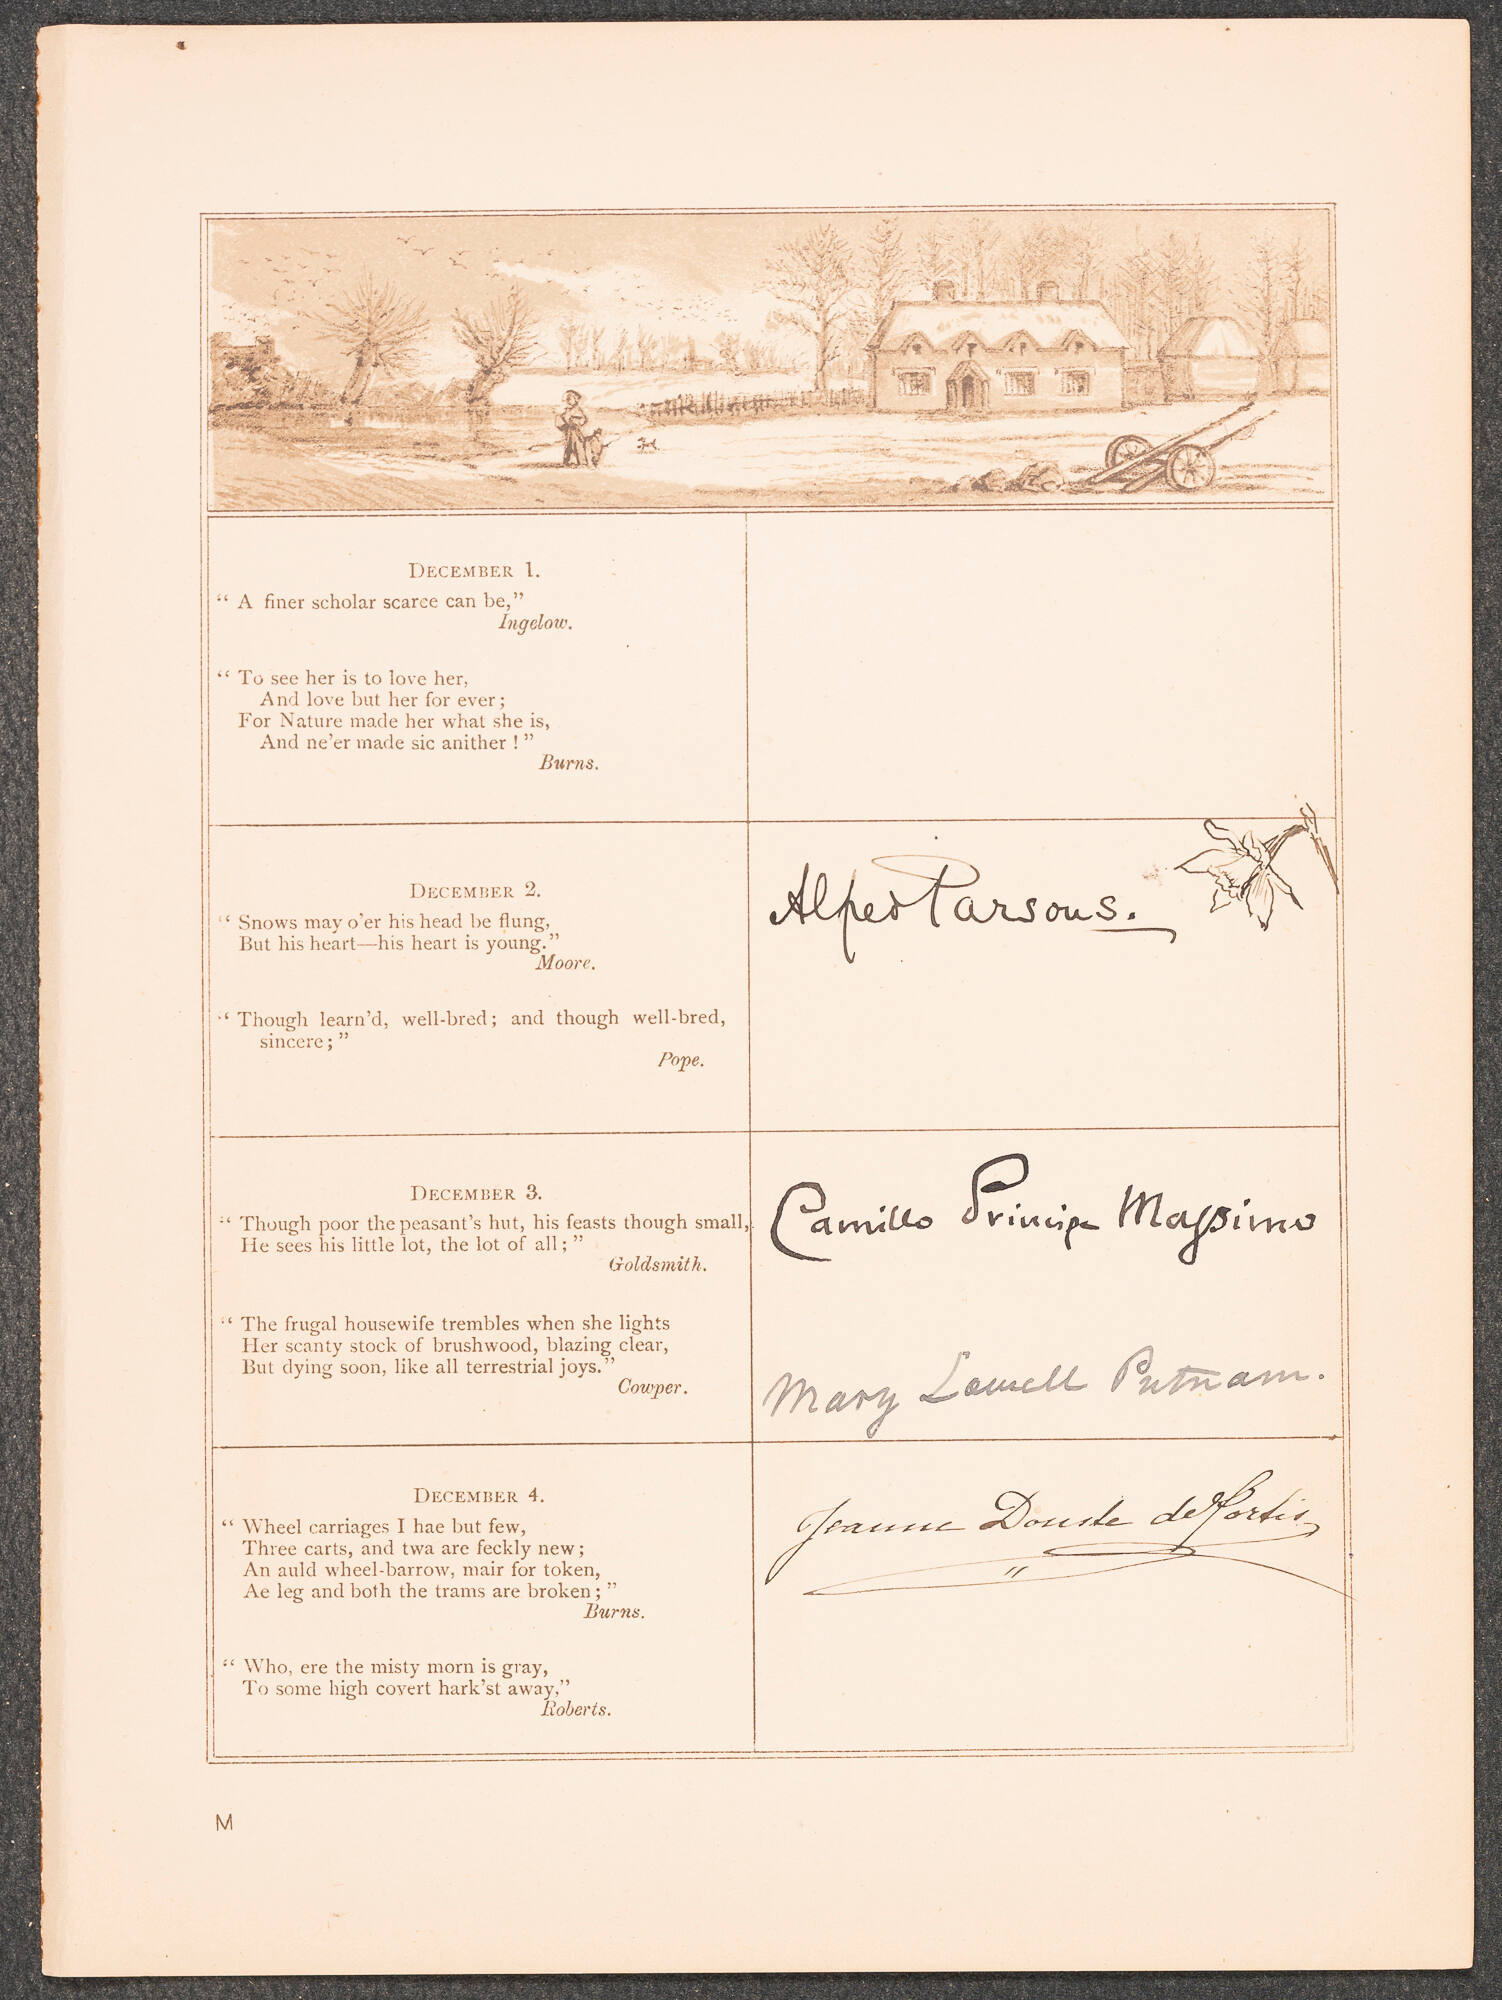 DECEMBER 1.
“ A finer scholar scarce can be,”
Ingelow.
“ To see her is to love her,
And love but her for ever ;
For Nature made her what she is,
And ne’er made sic anither ! ”
Burns.
DECEMBER 2.
“ Snows may o’er his head be flung,
But his heart—his heart is young.”
Moore.
“ Though learn’d, well-bred ; and though well-bred,
sincere ; ”
Pope.
Alfred Parsons.
DECEMBER 3.
“ Though poor the peasant’s hut, his feasts though small,
He sees his little lot, the lot of all ; ”
Goldsmith.
“ The frugal housewife trembles when she lights
Her scanty stock of brushwood, blazing clear,
But dying soon, like all terrestrial joys.”
Cowper.
Camillo Principe Massimo
Mary Lowell Putnam.
DECEMBER 4.
“ Wheel carriages I hae but few,
Three carts, and twa are feckly new ;
An auld wheel-barrow, mair for token,
Ae leg and both the trams are broken ; ”
Burns.
“ Who, ere the misty morn is gray,
To some high covert hark’st away,”
Roberts.
Jeanne Douste de Fortis
M